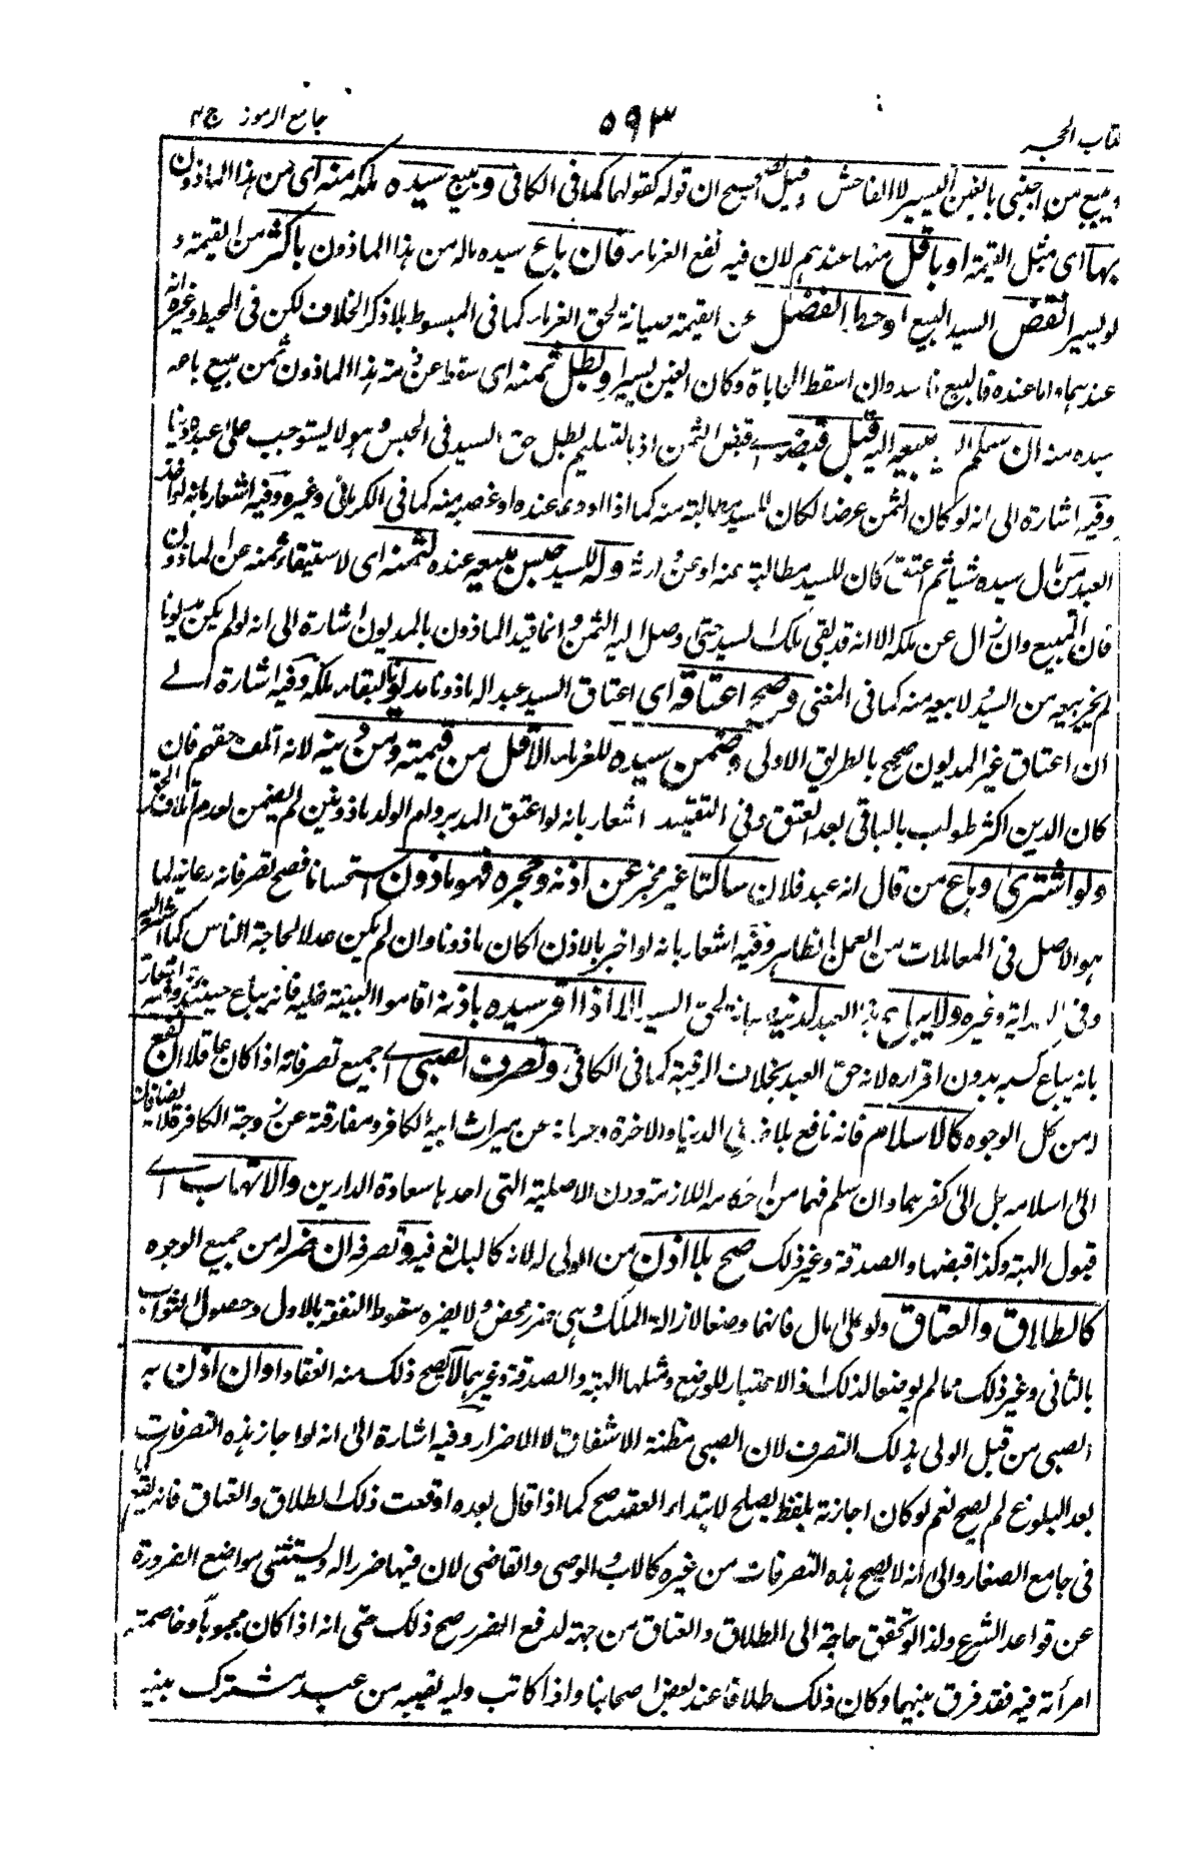 كتاب الحجر ٥٩٣ جامع الرموز ج٢
ويبيع من اجنبى بالغبن اليسير لا الفاحش وقيل الصحيح ان قوله كقولهما كما فى الكافى وبيع سيده ملكه منه اى من هذا الماذون
بها اى بمثل القيمة او باقل منها عندهم لان فيه نفع الغرماء فان باع سيده ماله من هذا الماذون باكثر من القيمة و
لو يسيرا نقض السيد البيع او حط الفضل عن القيمة صيانة لحق الغرماء كما فى المبسوط بلا ذكر الخلاف لكن فى المحيط وغيره انه
عندهما واما عنده فالبيع فاسد وان اسقط المحاباة وكان الغبن يسيرا وبطل ثمنه اى سقط عن ذمته هذا الماذون ثمن مبيع باعه
سيده منه ان سلم مبيعه اليه قبل قبضه اى قبض الثمن اذ بالتسليم بطل حق السيد فى الحبس وهو لا يستوجب على عبده دينا
وفيه اشارة الى انه لو كان الثمن عرضا لكان للسيد مطالبته منه كما اذا اودعه عنده او غصبه منه كما فى الكرمانى وغيره وفيه اشعار بانه لو اخذ
العبد من مال سيده شيئا ثم اعتق كان للسيد مطالبة منه او من وارثه وله للسيد حبس مبيعه عنده لثمنه اى لاستيفاء ثمنه عن الماذون
فان المبيع وان زال عن ملكه الا انه قد بقى ملك السيد حتى وصل اليه الثمن وانما قيد الماذون بالمديون اشارة الى انه لو لم يكن مديونا
لم يجز بيعه من السيد ولا بيعه منه كما فى المغنى وصح اعتاقه اى اعتاق السيد عبده الماذون مديونا لبقاء ملكه وفيه اشارة الے
ان اعتاق غير المديون صحيح بالطريق الاولى وضمن سيده للغرماء الاقل من قيمته ومن دينه لانه اتلف حقهم فان
كان الدين اكثر طولب بالباقى بعد العتق وفى التقييد اشعار بانه لو اعتق المدبر وام الولد ماذونين لم يضمن لعدم اتلاف الحق
ولو اشترى وباع من قال انه عبد فلان ساكتا غير مخبر عن اذنه وحجره فهو ماذون استحسانا فصح تصرفاته رعاية لما
هو الاصل فى المعاملات من العمل بالظاهر وفيه اشعار بانه لو اخبر بالاذن لكان ماذونا وان لم يكن عدلا لحاجة الناس كما اشير اليه
وفى الهداية وغيره ولا يباع هذا العبد لدينه صيانة لحق السيد الا اذا اقر سيده باذنه او اقاموا البينة عليه فانه يباع حينئذ وفيه اشعار
بانه يباع كسبه بدون اقراره لانه حق العبد بخلاف الرقبة كما فى الكافى وتصرف الصبى اى جميع تصرفاته اذا كان عاقلا ان نفع
من كل الوجوه كالاسلام فانه نافع بلا ضرر فى الدنيا والاخرة وحرمانه عن ميراث ابيه الكافر ومفارقته عن زوجة الكافرة لا يضاف
الى اسلامه بل الى كفرهما وان سلم فهما من احكامه اللازمة دون الاصلية التى احدها سعادة الدارين والاتهاب اى
قبول الهبة وكذا قبضها والصدقة وغير ذلك صح بلا اذن من الولى له لانه كالبالغ فيه وتصرفه ان ضر له من جميع الوجوه
كالطلاق والعتاق ولو على مال فانهما وضعا لازالة الملك وهى ضرر محض ولا يضره سقوط النفقة بالاول وحصول الثواب
بالثانى وغير ذلك مما لم يوضعا لذلك اذ الاعتبار للوضع ومثلهما الهبة والصدقة وغيرهما لا يصح ذلك منه انعقادا وان اذن به
الصبى من قبل الولى بذلك التصرف لان الصبى مظنة الاشفاق لا الاضرار وفيه اشارة الى انه لو اجاز هذه التصرفات
بعد البلوغ لم يصح نعم لو كان اجازته بلفظ يصلح لابتداء العقد صح كما اذا قال بعده اوقعت ذلك الطلاق والعتاق فانه يقع كما
فى جامع الصغار والى انه لا يصح هذه التصرفات من غيره كالاب والوصى والقاضى لان فيها ضررا له ويستثنى مواضع الضرورة
عن قواعد الشرع ولذا لو تحقق حاجة الى الطلاق والعتاق من جهته لدفع الضرر صح ذلك حتى انه اذا كان مجبوبا وخاصمته
امرأته فيه فقد فرق بينهما وكان ذلك طلاقا عند بعض اصحابنا واذا كاتب وليه نصيبه من عبد مشترك بينه